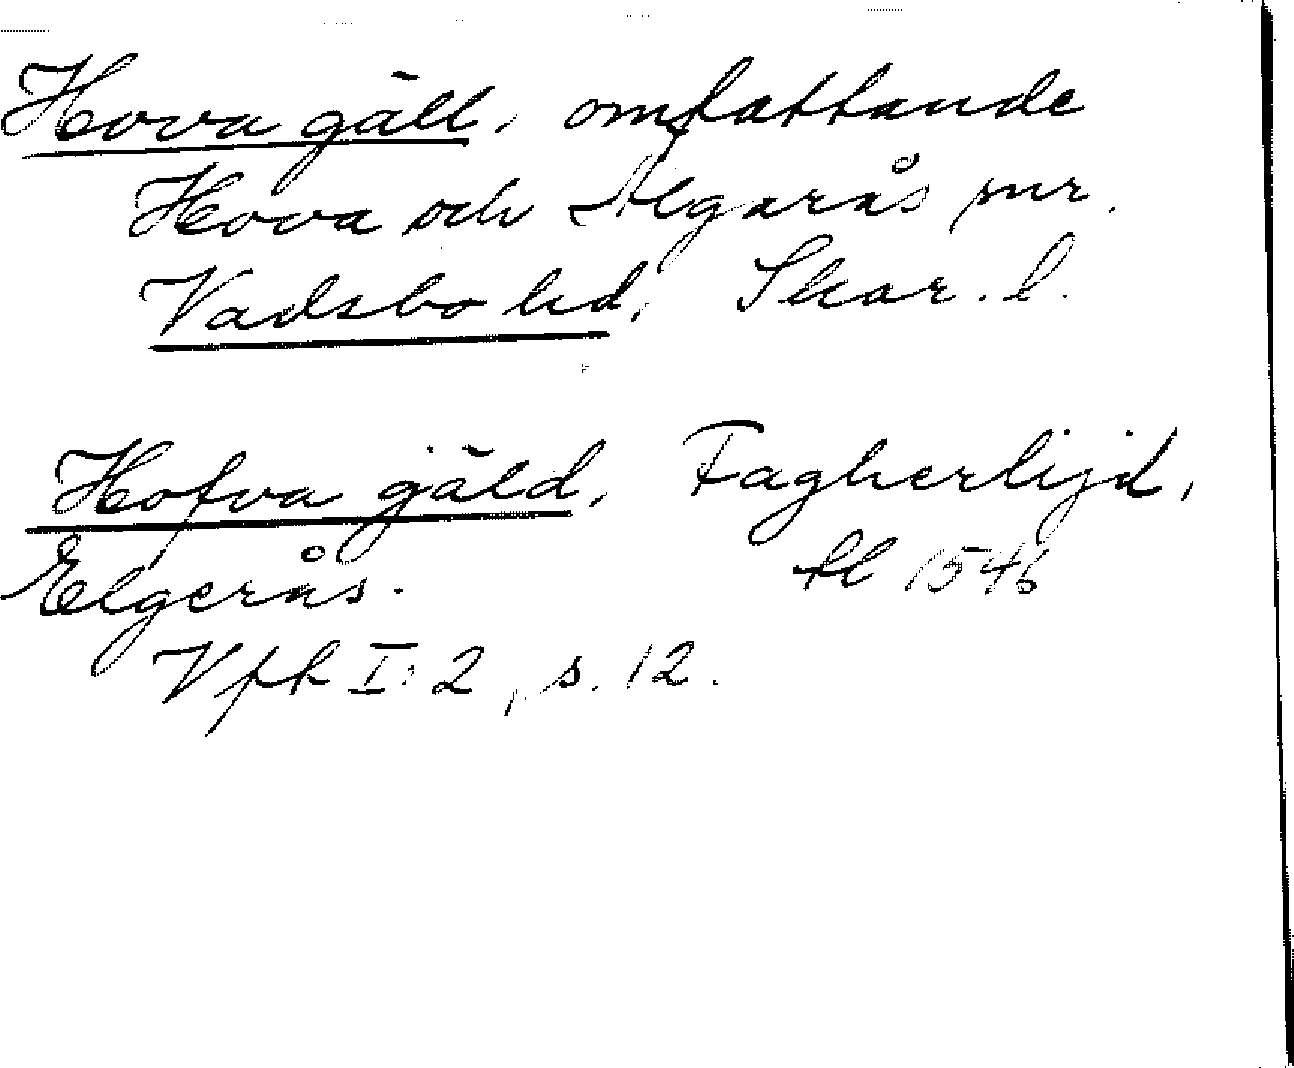 Hova gäll, omfattande
Hova och Älgarås snr.
Vadsbo hd, Skar. l.
Hofva gäld, Fagherlijd,
Elgerås. fl 1546
Vfk I:2, s. 12.